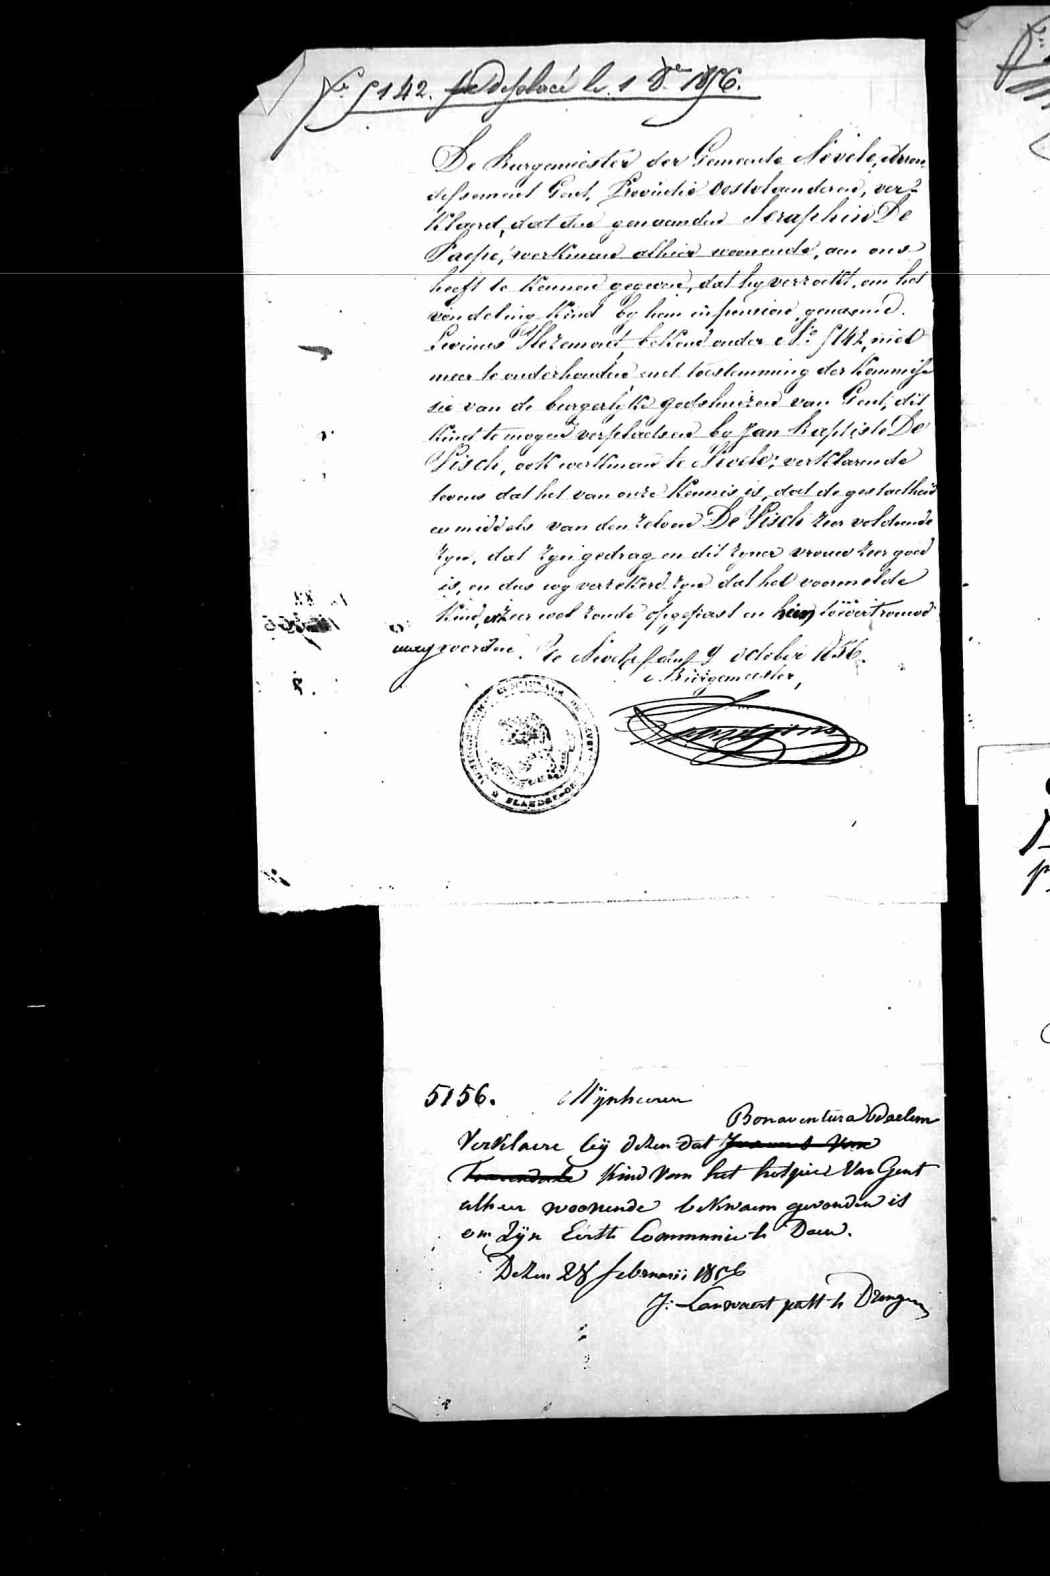 N° 5142. déplacé le 1 8re 1856.
De Burgemeester der Gemeente Nevele, Arron-
dissement Gent, Provintie Oostvlaanderen, ver-
klaerd, dat den genaemden Seraphin De
Paepe, werkman alhier woonende, aen ons
heeft te kennen gegeven, dat hy verzoekt, om het
vondeling kind by hem in pensioen, genaemd.
Livinus, bekend onder N° 5142, niet
meer te onderhouden met toestemming der Kommis-
sie van de burgerlyke godshuizen van Gent, dit
kind te mogen verplaetsen by Jan Baptiste De
Visch, ook werkman te Nevele; verklarende
tevens dat het van onze kennis is, dat de gesteltheid
en middels van den zelven De Visch zeer voldoende
zyn, dat zyn gedrag en dit zyner vrouw zeer goed
is, en dus wy verzekerd zyn dat het voormelde
kind, zeer wel zoude opgepast en hem toevertrouwd
mag worden. Te Nevele den 9 october 1856.
Burgemeester,
5156. Mynheeren
Bonaventura Daelem
Verklaere bij dezen dat
kind van het hospice Van Gent
alhier woonende bekwaem gevonden is
om Zijn Eerste Communie te Doen.
Dezen 28 februarii 1856
J: Lauwaert past te Drongen